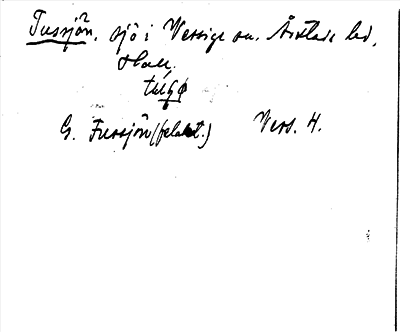 Tussjön, sjö i Versige sn. Årstads hd,
Hall.
G. Fussjön (felakt.) Vers. H.